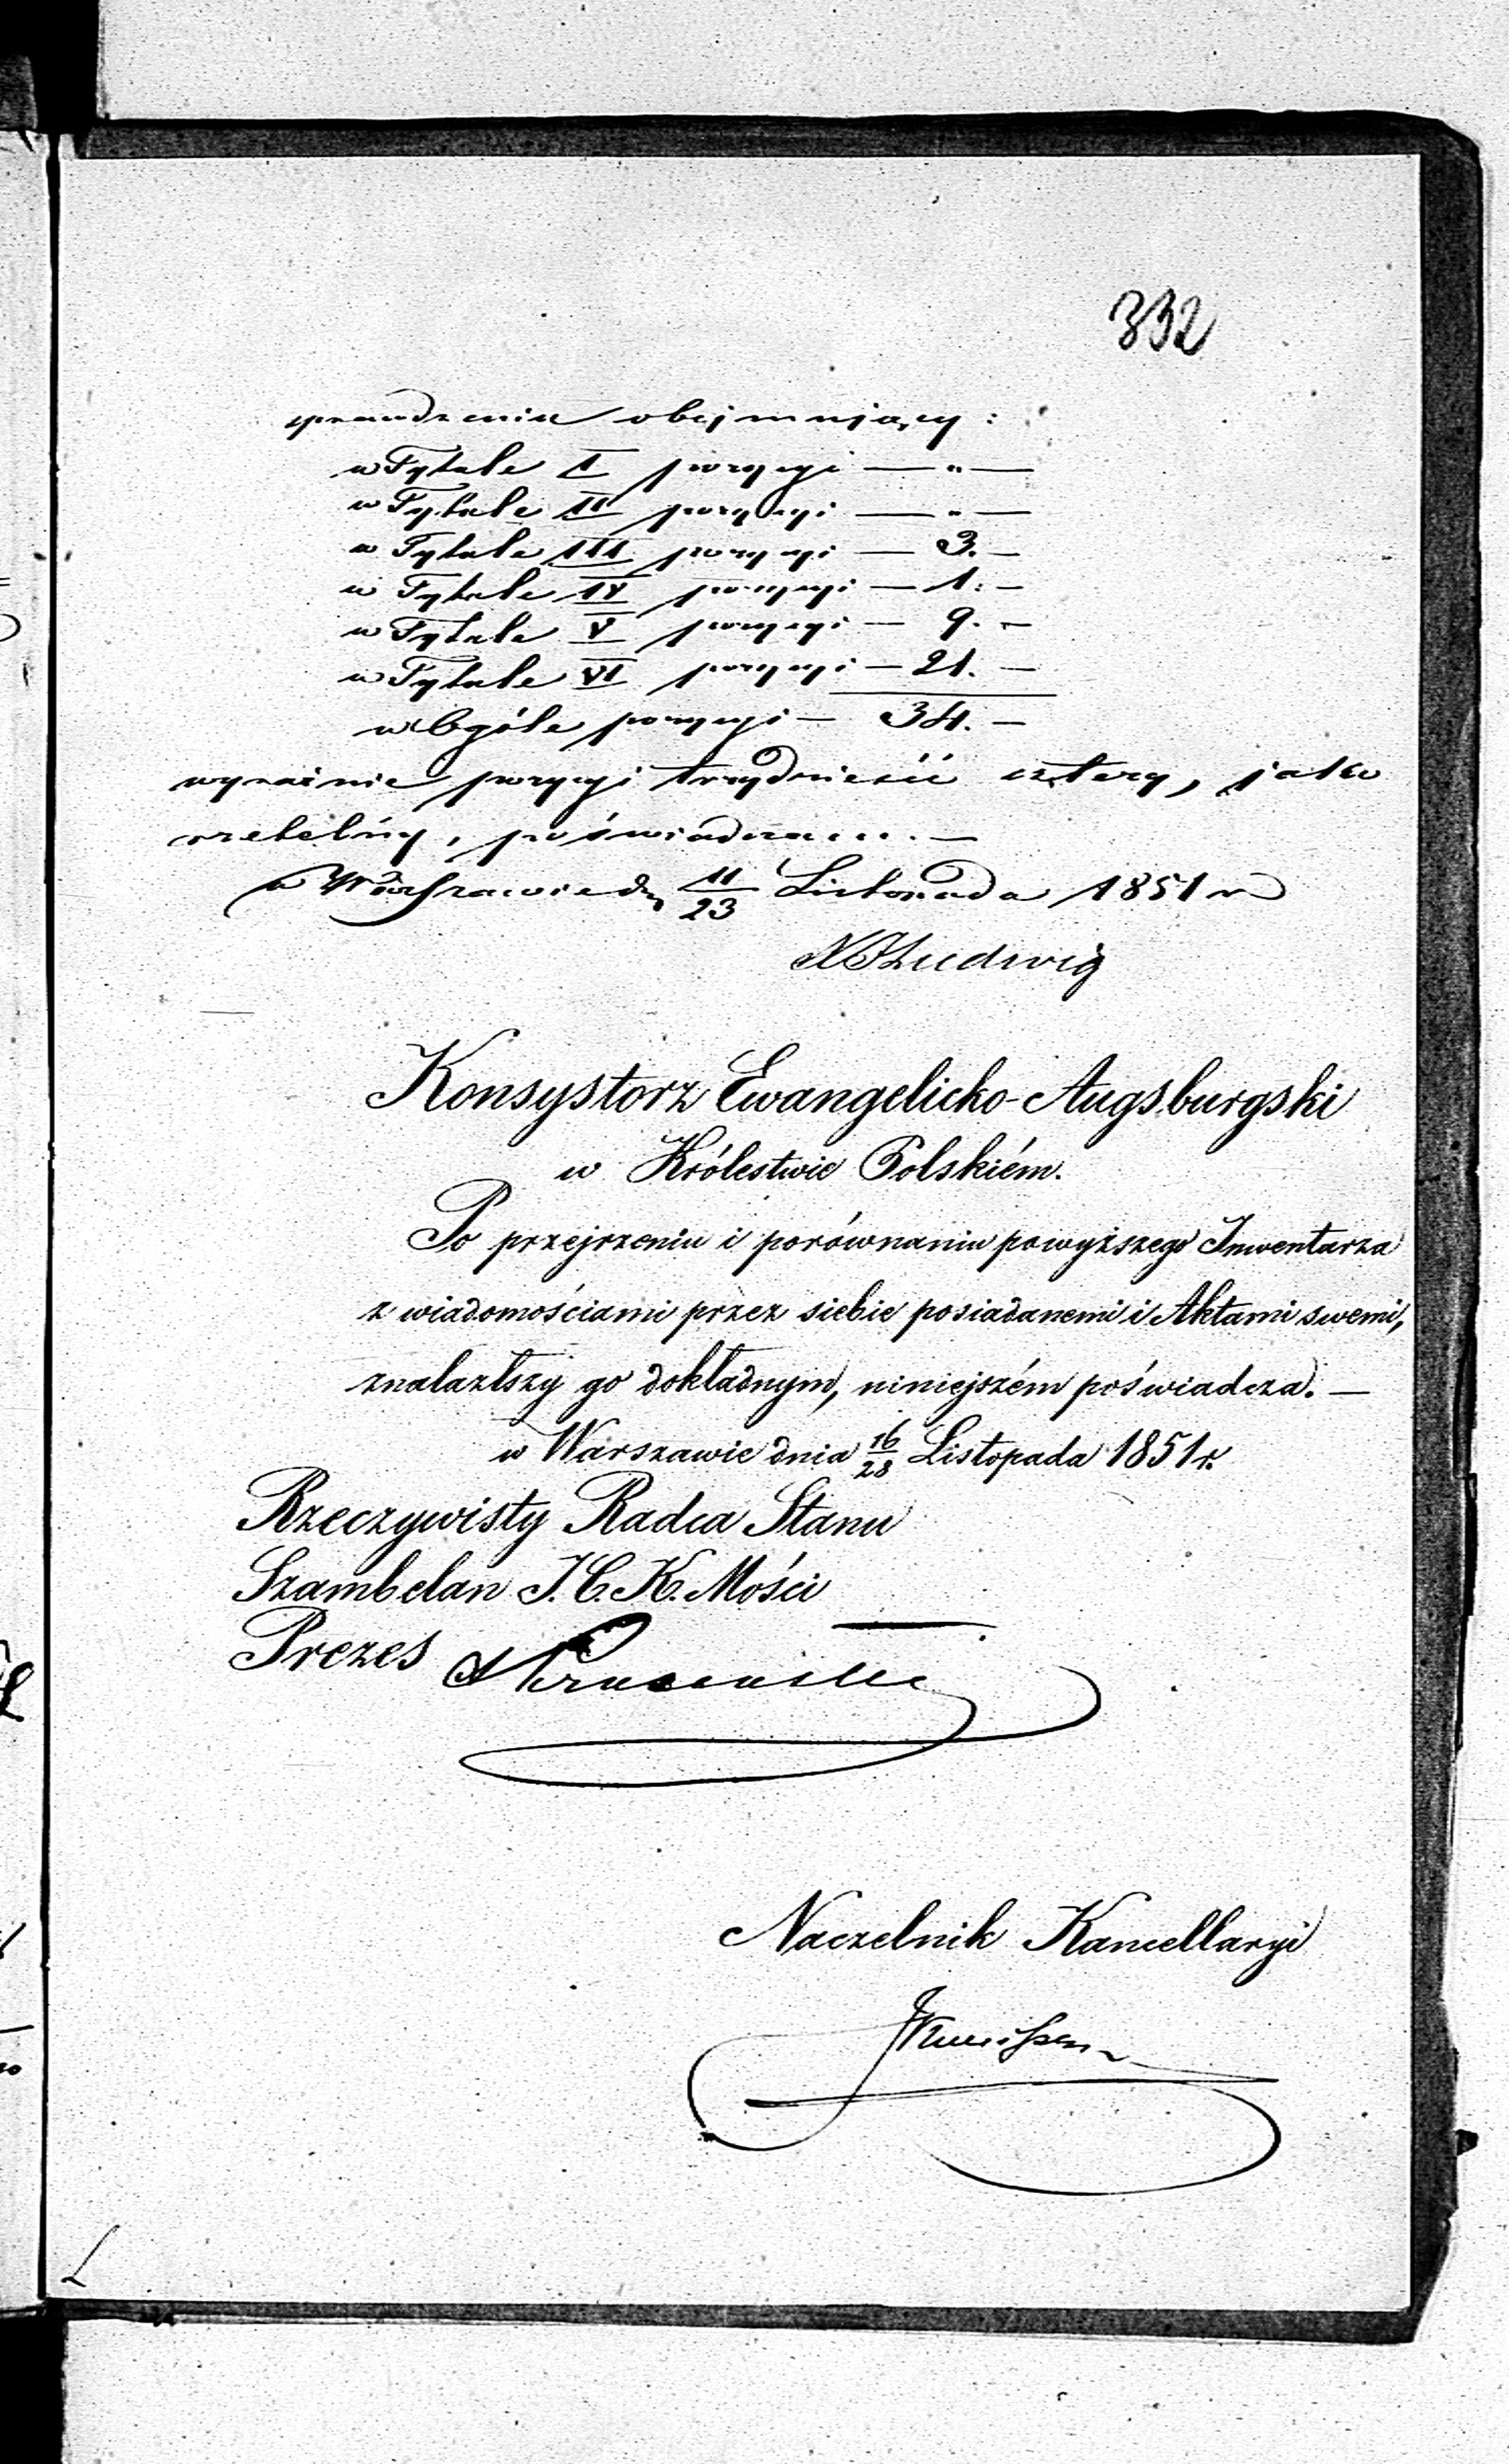 332
sprawdzenia obejmujący :
w Tytule I pozycyi — " —
w Tytule II pozycyi — " —
w Tytule III pozycyi — 3. —
w Tytule IV pozycyi — 1. —
w Tytule V pozycyi — 9. —
w Tytule VI pozycyi — 21. —
w Ogóle pozycyi — 34. —
wyraźnie pozycyi trzydzieści cztery, jako
rzetelny, poświadcza .... —
w Warszawie dn 11/23 Listopada 1851 r
Ludwig
Konsystorz Ewangelicko-Augsburgski
w Królestwie Polskiém.
Po przejrzeniu i porównaniu powyższego Inwentarza
z wiadomościami przez siebie posiadanemi i Aktami swemi,
znalazłszy go dokładnym, niniejszém poświadcza. —
w Warszawie dnia 16/28 Listopada 1851 r.
Rzeczywisty Radca Stanu
Szambelan J. C. K. Mości
Prezes
Naczelnik Kancellaryi